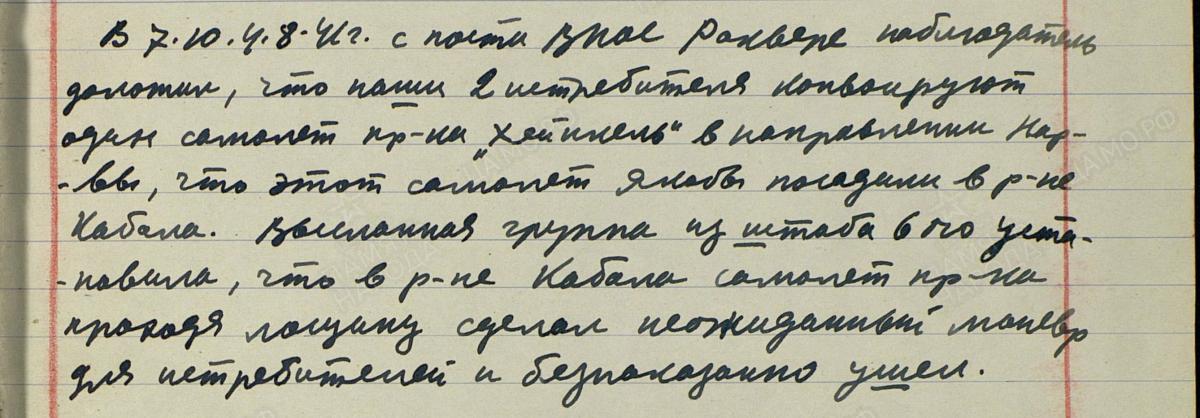 В 7.10. 4.8.41г. с поста ВНОС Раквере наблюдатель
доложил, что наши 2 истребителя конвоируют
один самолет пр-ка „Хейнкель" в направлении Нар-
-вы, что этот самолет якобы посадили в р-не
Кабала. Высланная группа из штаба 6 бно уста-
-новила, что в р-не Кабала самолет пр-ка
проходя лощину сделал неожиданный маневр
для истребителей и безнаказанно ушел.